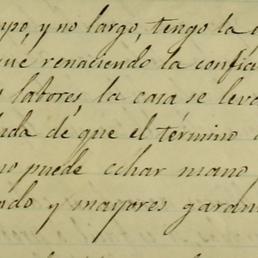 mpo, y no largo, tengo la
que renaciendo la confia
labores, la casa se leva
nda de que el término
no puede echar mano
ndo y mayores gardu